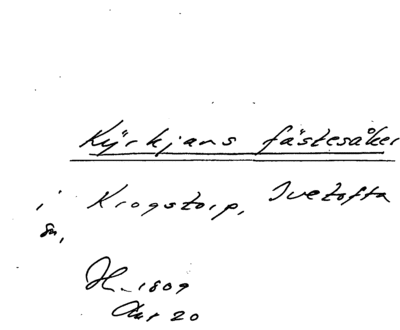 Kyrkjans fästesåker
i Krogstorp, Ivetofta
sn,
H - 1809
Akt 20